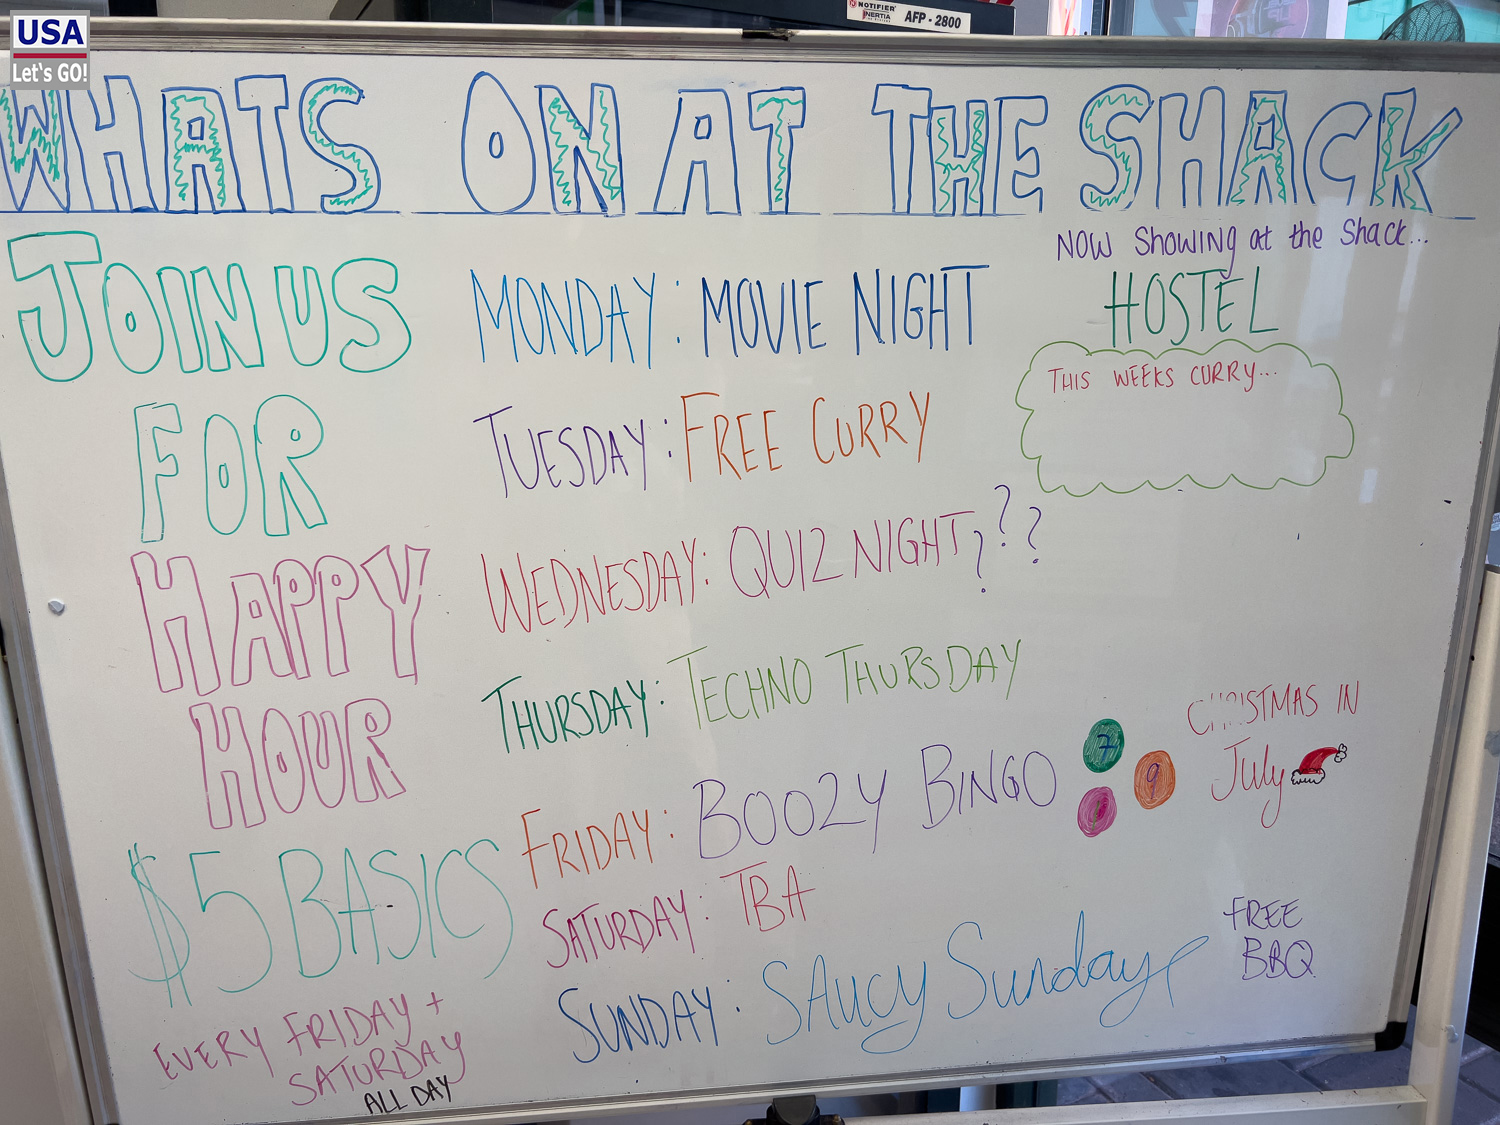 USA
Let's GO!
NOTIFIER
INERTIA
AFP - 2800
WHATS ON AT THE SHACK
JOIN US
FOR
HAPPY
HOUR
$5 BASICS
EVERY FRIDAY +
SATURDAY
ALL DAY
MONDAY: MOVIE NIGHT
TUESDAY: FREE CURRY
WEDNESDAY: QUIZ NIGHT???
THURSDAY: TECHNO THURSDAY
FRIDAY: BOOZY BINGO
7
9
SATURDAY: TBA
SUNDAY: SAUCY Sunday
NOW SHOWING at the Shack...
HOSTEL
THIS WEEKS CURRY...
CHRISTMAS IN
July
FREE
BBQ